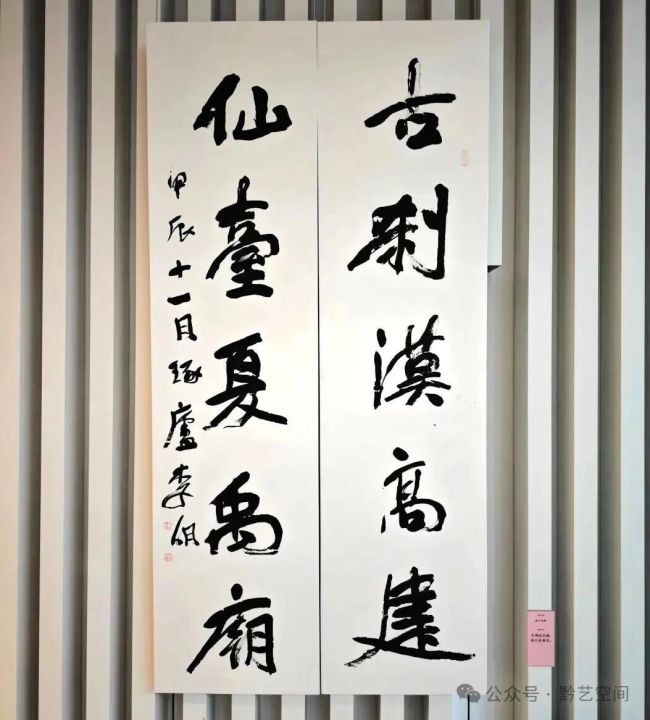 古刹漢高建
仙臺夏禹廟
甲辰十一月琢廬李
公众号 · 黔艺空间